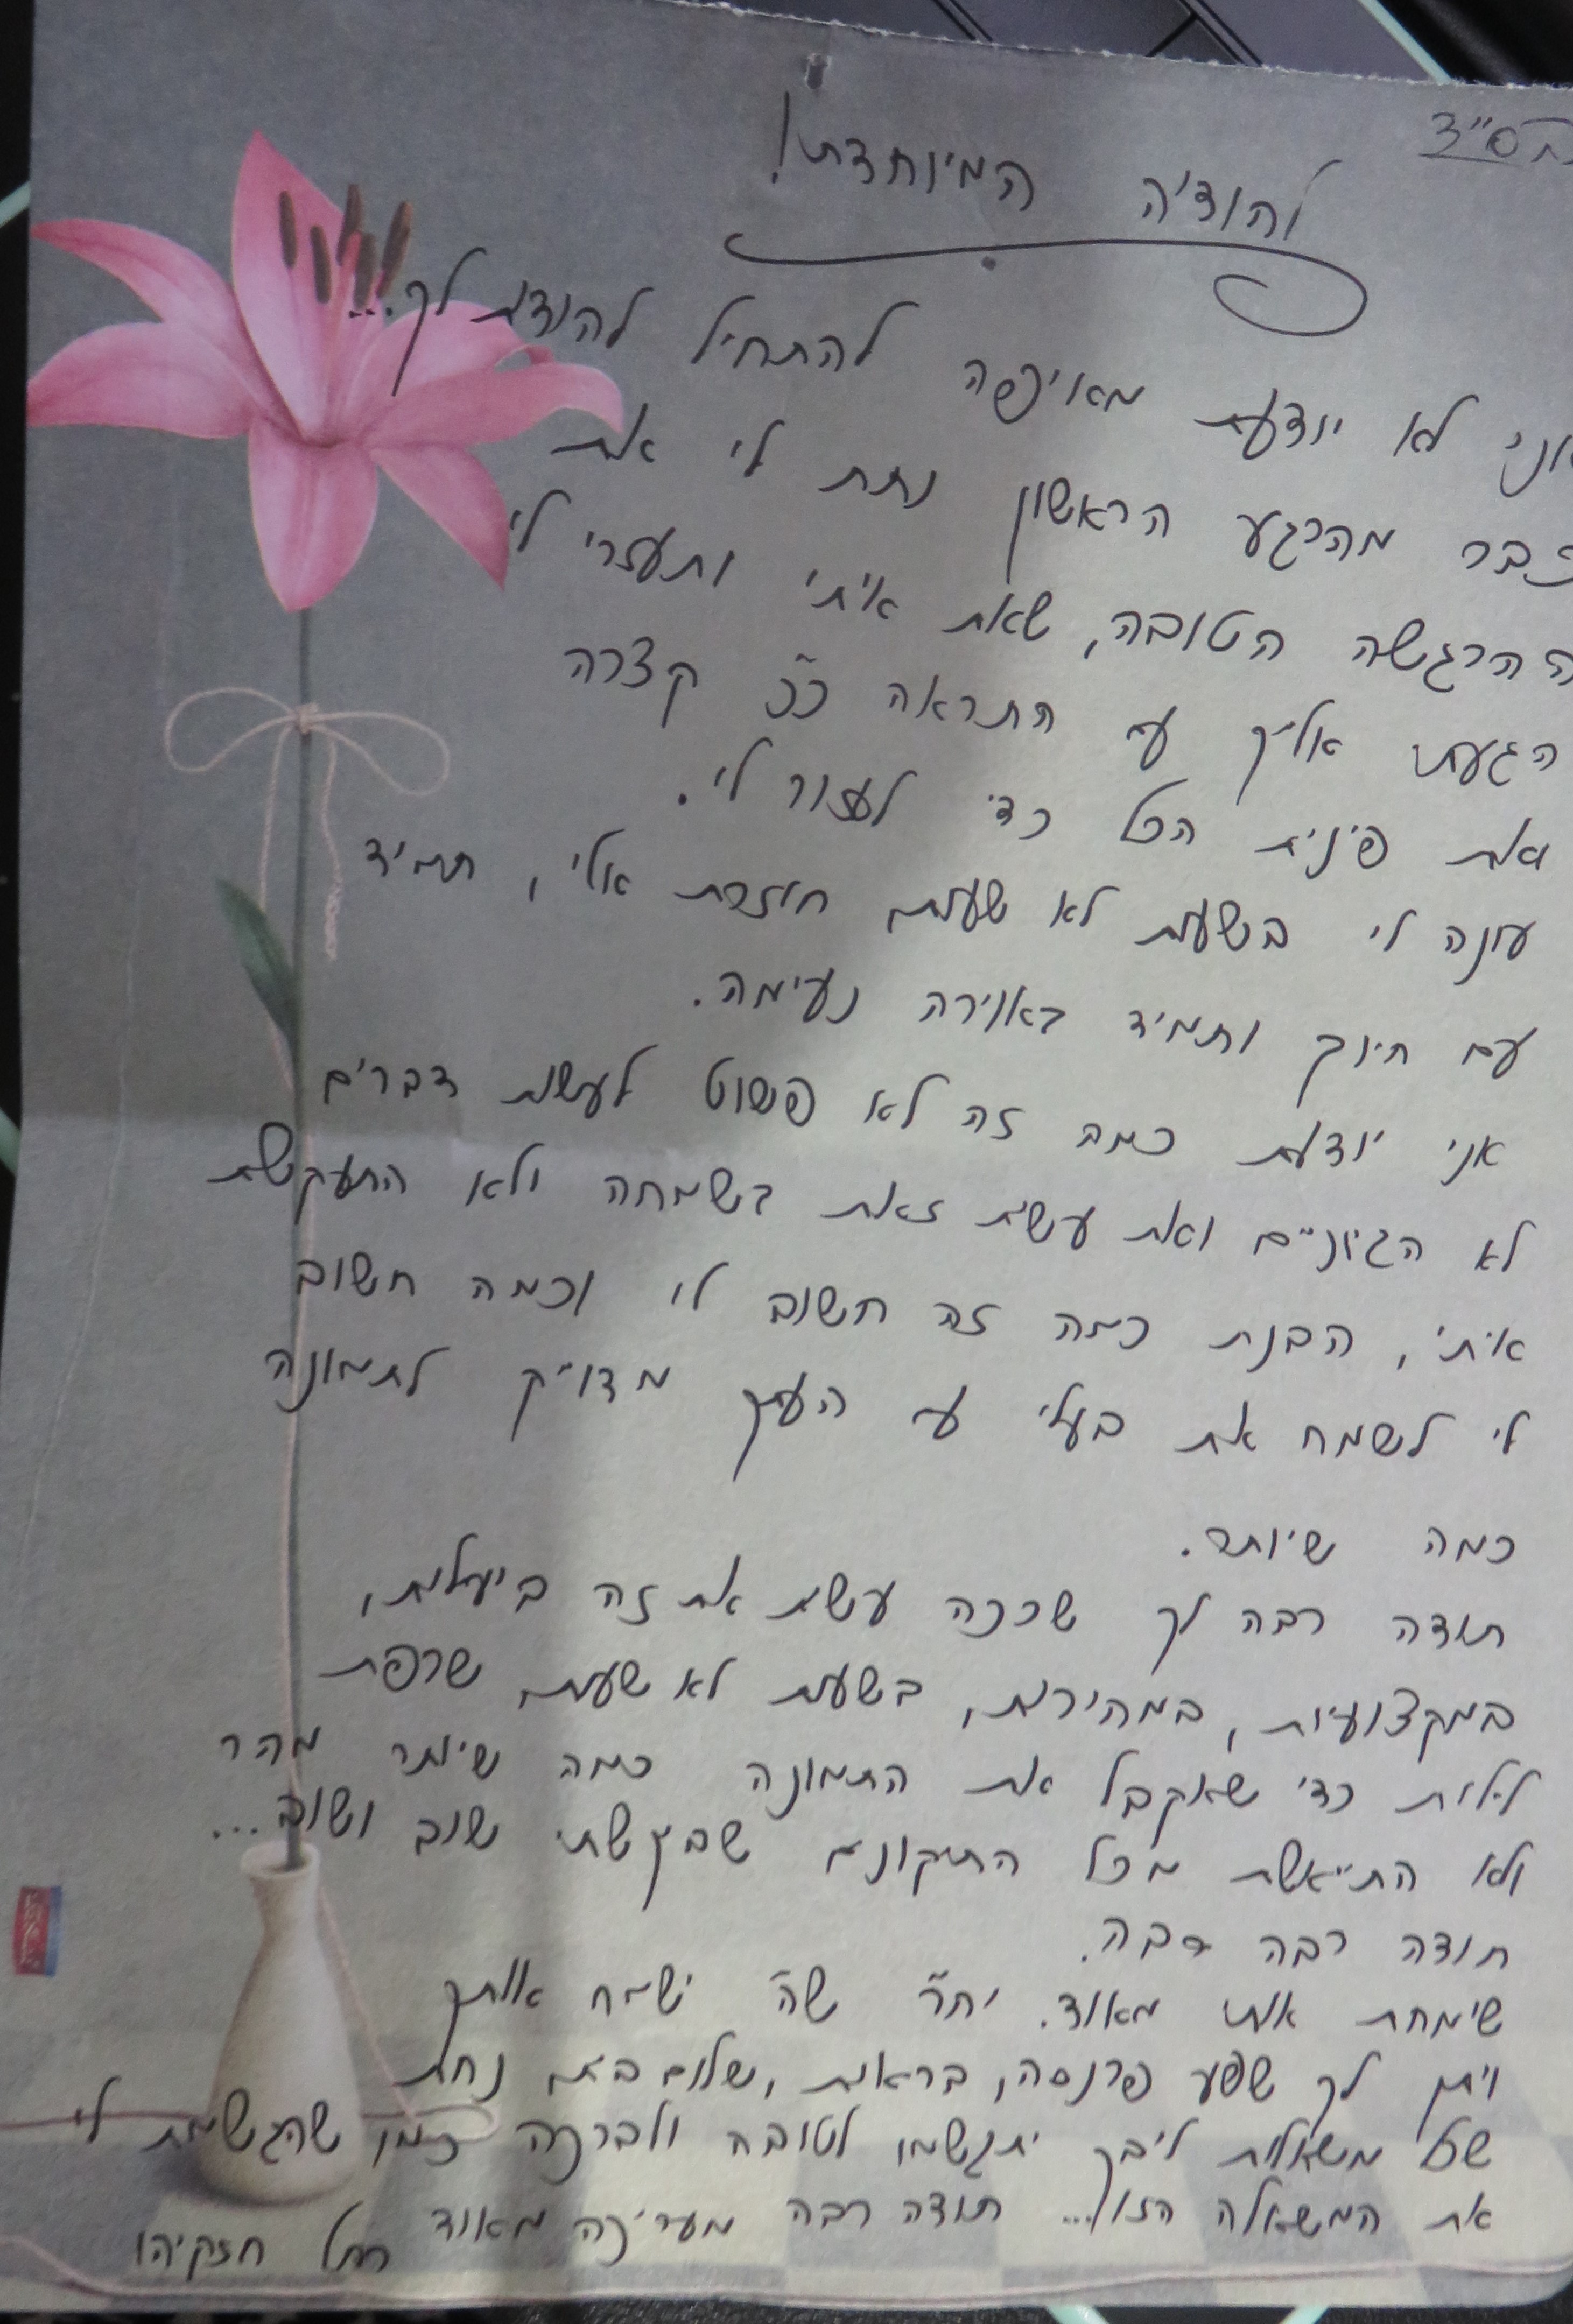 בס"ד
להודיה המיוחדת!
אני לא יודעת מאיפה להתחיל להודות לך...
כבר מהרגע הראשון נתת לי את
ההרגשה הטובה, שאת איתי ותעזרי לי
הגעתי אליך עם התראה כ"כ קצרה
ואת פינית הכל כדי לעזור לי.
עונה לי בשעות לא שעות, חוזרת אלי, תמיד
עם חיוך ותמיד באוירה נעימה.
אני יודעת כמה זה לא פשוט לעשות דברים
לא הגיוניים ואת עשית זאת בשמחה ולא התעקשת
איתי, הבנת כמה זה חשוב לי וכמה חשוב
לי לשמח את בעלי עם העתק מדוייק לתמונה
כמה שיותר.
תודה רבה לך שככה עשית את זה ביעילות,
במקצועיות, במהירות, בשעות לא שעות, שרפת
לילות כדי שאקבל את התמונה כמה שיותר מהר
ולא התייאשת מכל התיקונים שבקשתי שוב ושוב...
תודה רבה רבה.
שימחת אותי מאוד. יה"ר שה' ישמח אותך
ויתן לך שפע פרנסה, בריאות, שלום בית, נחת
שכל משאלות ליבך יתגשמו לטובה ולברכה כמו שהגשמת לי
את המשאלה הזו... תודה רבה מעריכה מאוד
רחל חזקיהו